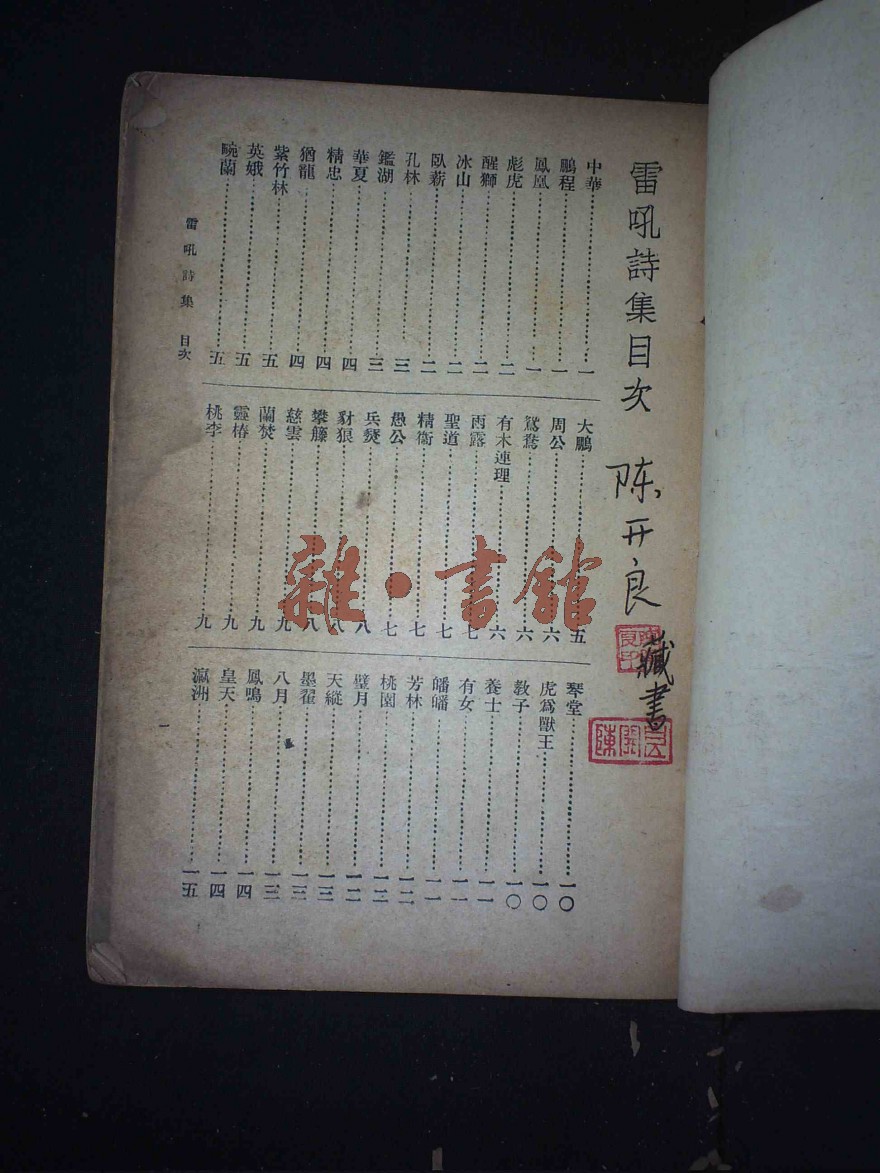 雷吼詩集目次
陈开良
藏書
陳開良
中華一
鵬程一
鳳凰一
彪虎二
醒獅二
冰山二
臥薪二
孔林三
鑑湖三
華夏四
精忠四
猶龍四
紫竹林五
英娥五
畹蘭五
大鵬五
周公六
鴛鴦六
有木連理六
雨露七
聖道七
精衞七
愚公七
兵燹八
豺狼八
攀籐八
慈雲九
蘭焚九
靈椿九
桃李九
琴堂一〇
虎爲獸王一〇
教子一〇
養士一一
有女一一
皤皤一一
芳林一二
桃園一二
璧月一二
天縱一三
墨翟一三
八月一三
鳳鳴一四
皇天一四
瀛洲一五
雷吼詩集 目次
一
雜·書館